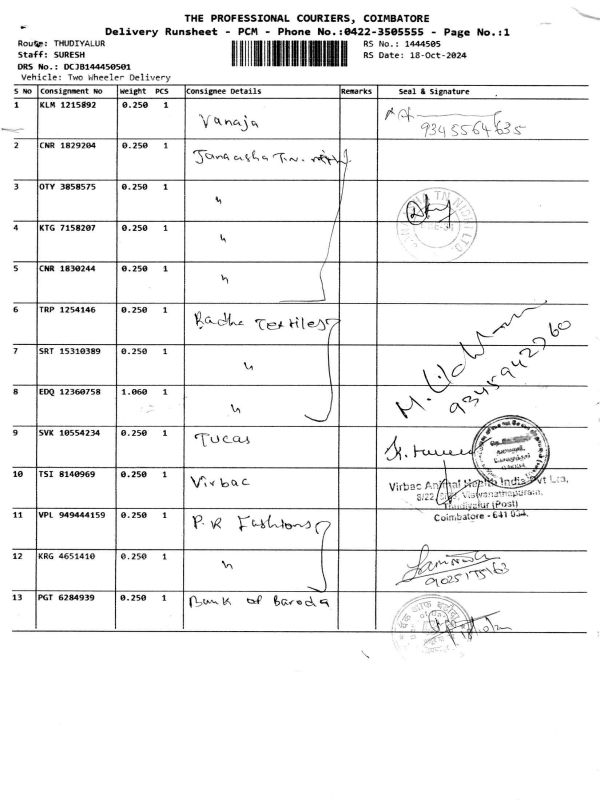 THE PROFESSIONAL COURIERS, COIMBATORE
Delivery Runsheet - PCM - Phone No.:0422-3505555 - Page No.:1
Route: THUDIYALUR RS No.: 1444505
Staff: SURESH RS Date: 18-Oct-2024
DRS No.: DCJB144450501
Vehicle: Two Wheeler Delivery
S NO Consignment No Weight PCS Consignee Details Remarks Seal & Signature
1 KLM 1215892 0.250 1 Vanaja 9345564635
2 CNR 1829204 0.250 1
3 OTY 3858575 0.250 1 "
4 KTG 7158207 0.250 1 "
5 CNR 1830244 0.250 1 "
6 TRP 1254146 0.250 1 Radha Textiles
7 SRT 15310389 0.250 1 " 9345942760
8 EDQ 12360758 1.060 1 "
9 SVK 10554234 0.250 1 Tucas
10 TSI 8140969 0.250 1 Virbac Virbac Animal Health India Pvt Ltd.
Viswanathapuram,
Thudiyalur (Post)
Coimbatore - 641 034.
11 VPL 949444159 0.250 1 P.R Fashions
12 KRG 4651410 0.250 1 "
13 PGT 6284939 0.250 1 Bank of Baroda